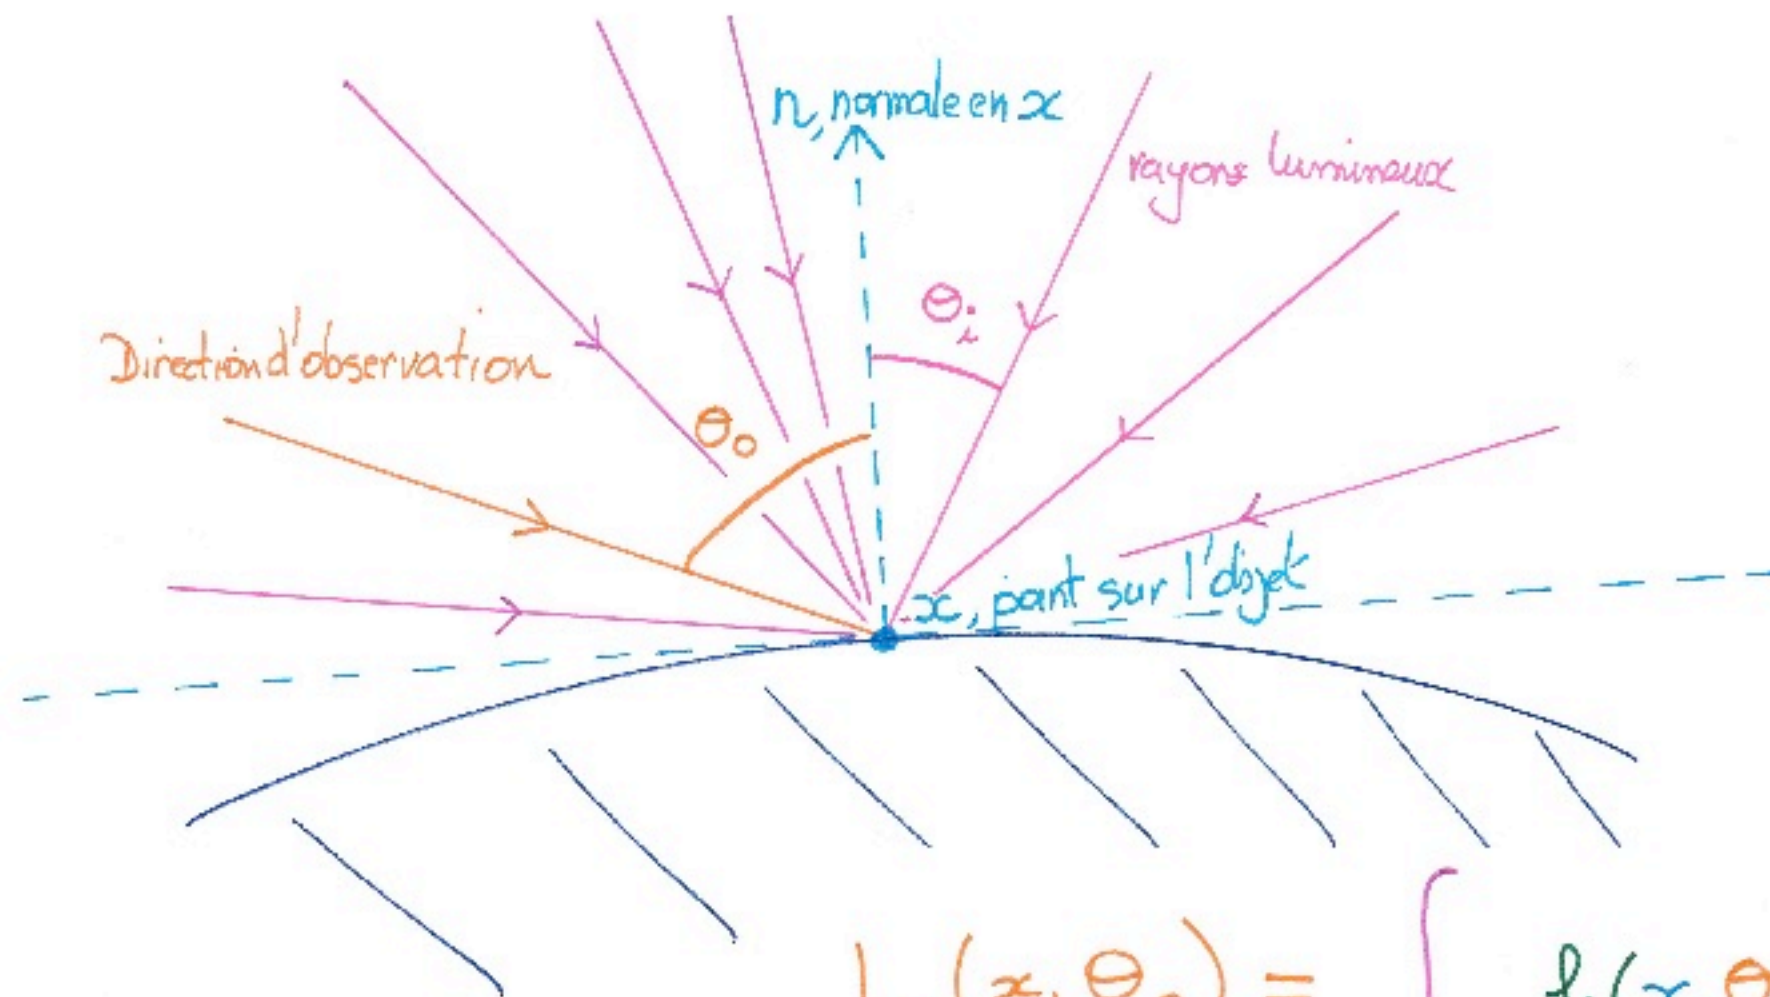 n, normale en x
rayons lumineux
θi
Direction d'observation
θo
x, point sur l'objet
L (x, θo) = ∫ f (x, θ